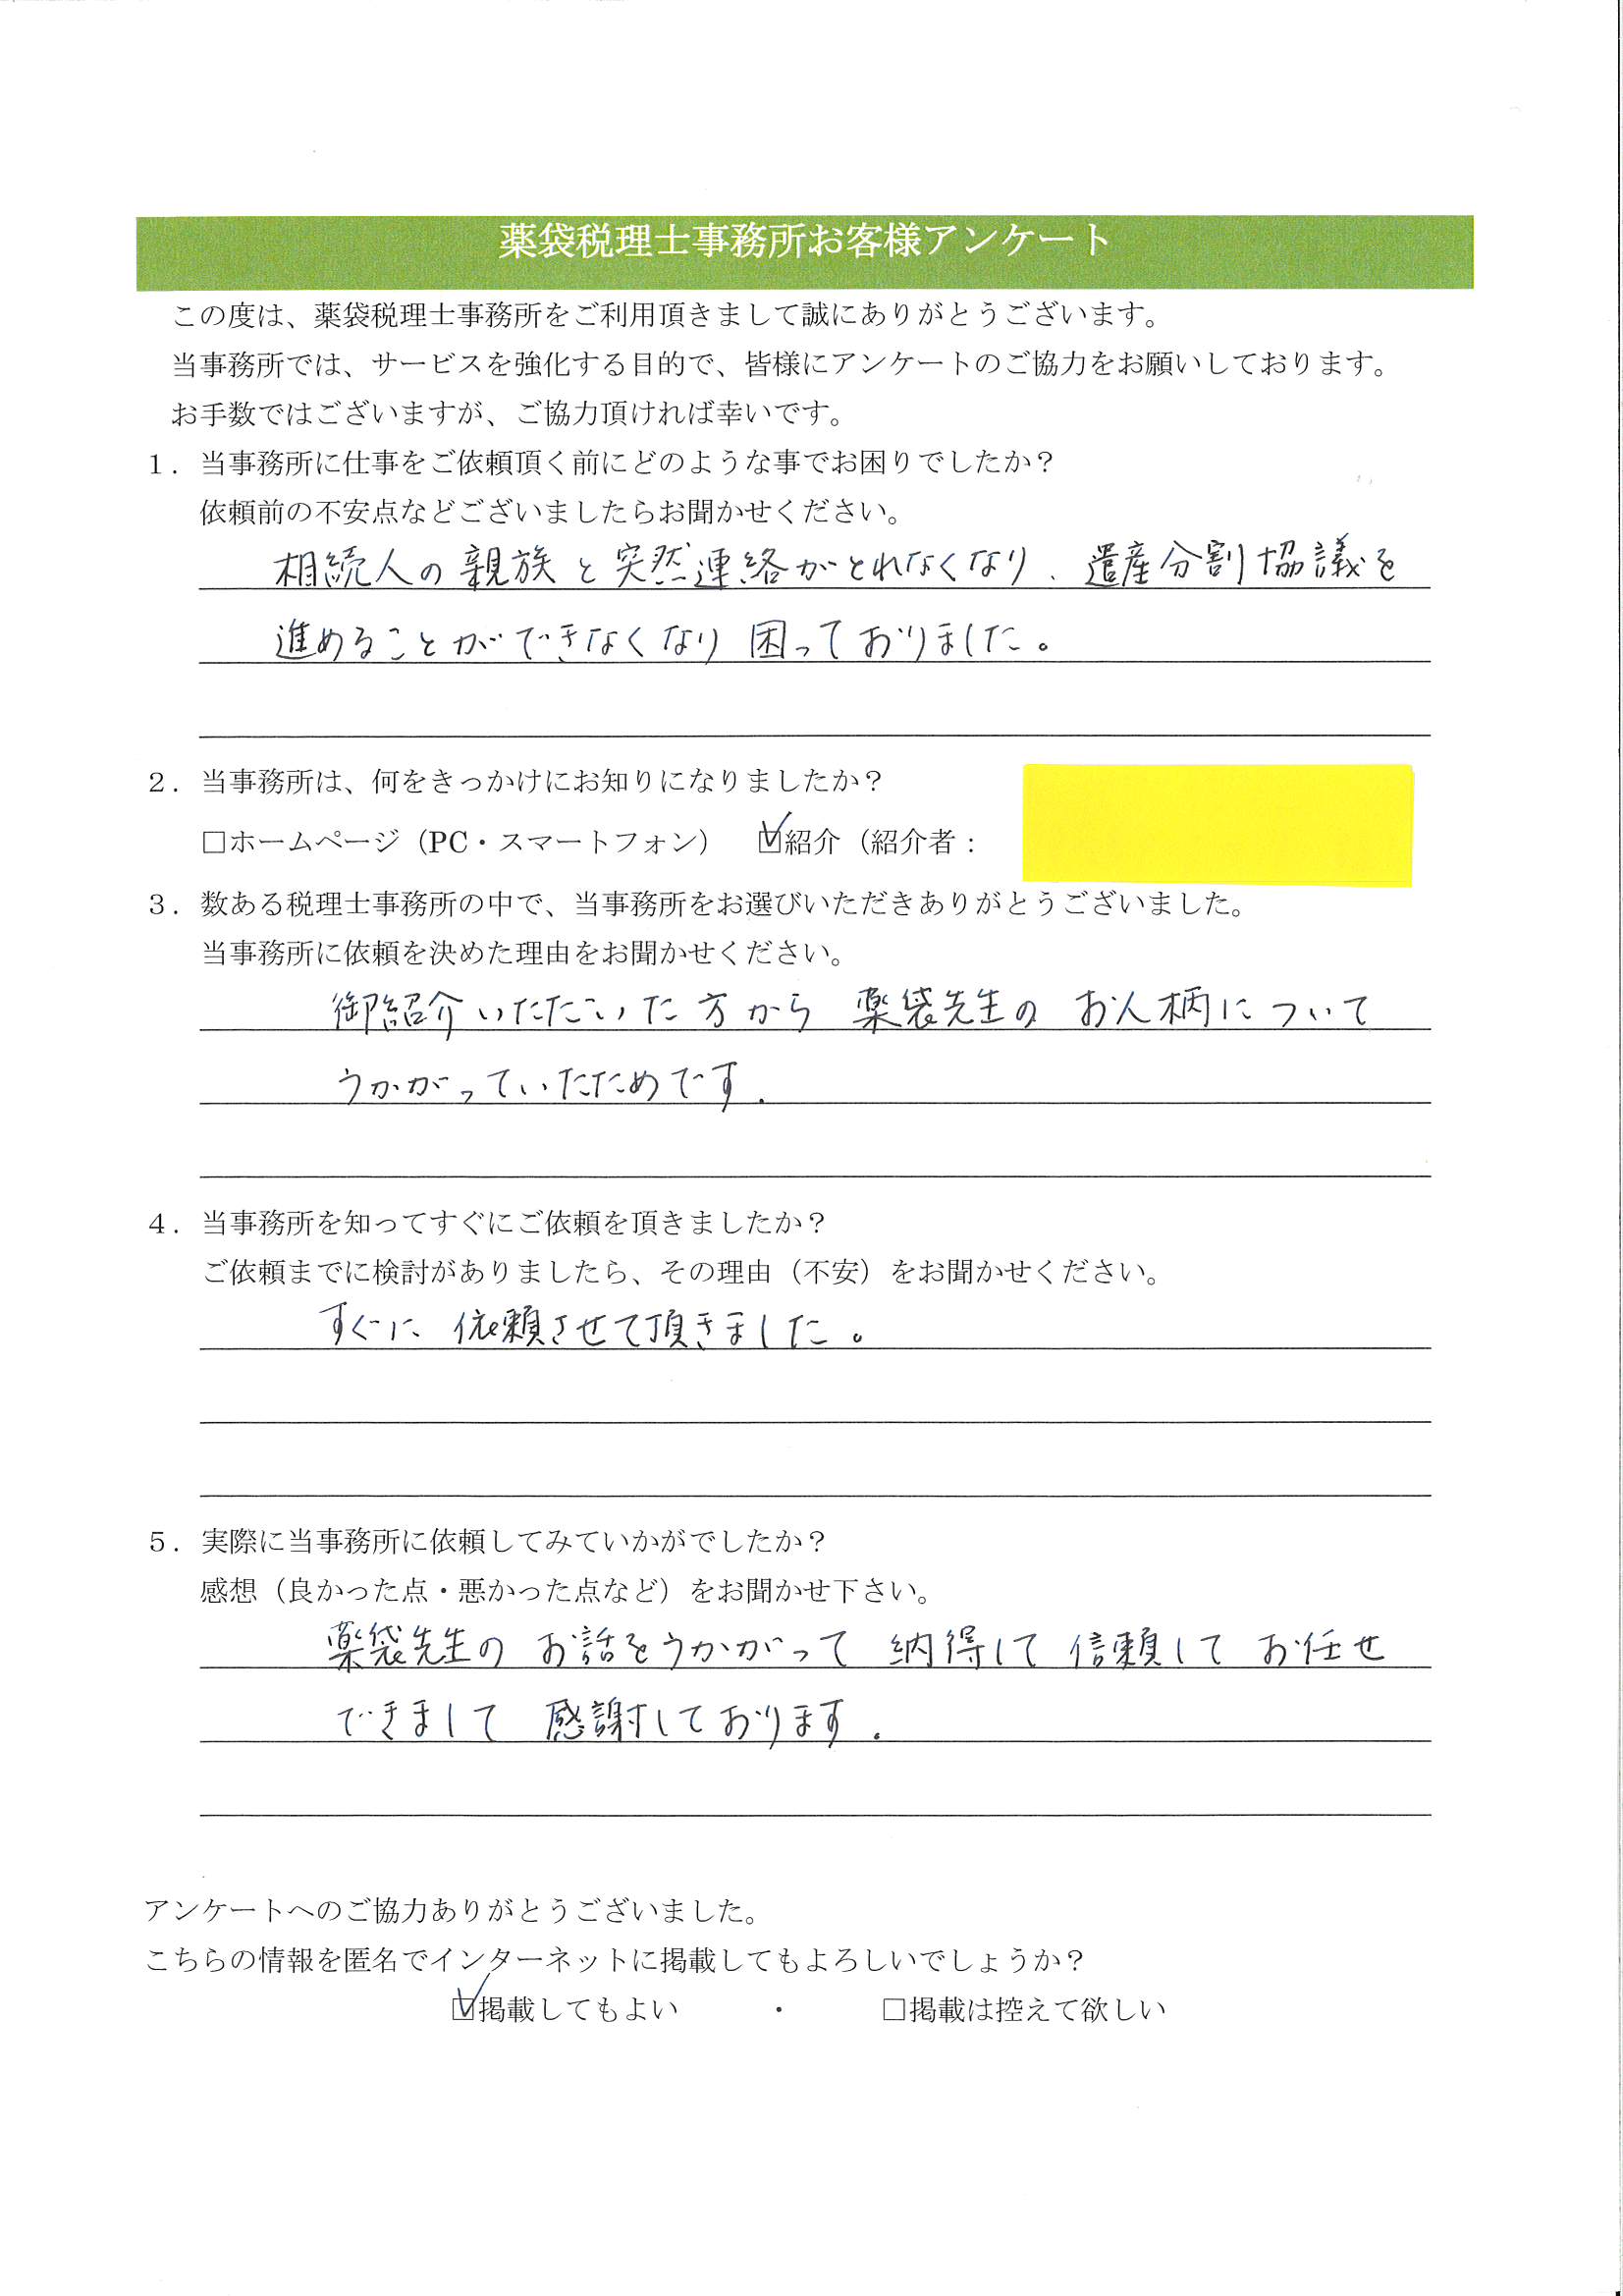 薬袋税理士事務所お客様アンケート
この度は、薬袋税理士事務所をご利用頂きまして誠にありがとうございます。
当事務所では、サービスを強化する目的で、皆様にアンケートのご協力をお願いしております。
お手数ではございますが、ご協力頂ければ幸いです。
１．当事務所に仕事をご依頼頂く前にどのような事でお困りでしたか？
依頼前の不安点などございましたらお聞かせください。
相続人の親族と突然連絡がとれなくなり、遺産分割協議を
進めることができなくなり困っておりました。
２．当事務所は、何をきっかけにお知りになりましたか？
□ホームページ（PC・スマートフォン） ☑紹介（紹介者：
３．数ある税理士事務所の中で、当事務所をお選びいただきありがとうございました。
当事務所に依頼を決めた理由をお聞かせください。
御紹介いただいた方から 薬袋先生の お人柄について
うかがっていたためです．
４．当事務所を知ってすぐにご依頼を頂きましたか？
ご依頼までに検討がありましたら、その理由（不安）をお聞かせください。
すぐに 依頼させて頂きました。
５．実際に当事務所に依頼してみていかがでしたか？
感想（良かった点・悪かった点など）をお聞かせ下さい。
薬袋先生の お話をうかがって 納得して 信頼して お任せ
できまして 感謝しております．
アンケートへのご協力ありがとうございました。
こちらの情報を匿名でインターネットに掲載してもよろしいでしょうか？
☑掲載してもよい ・ □掲載は控えて欲しい